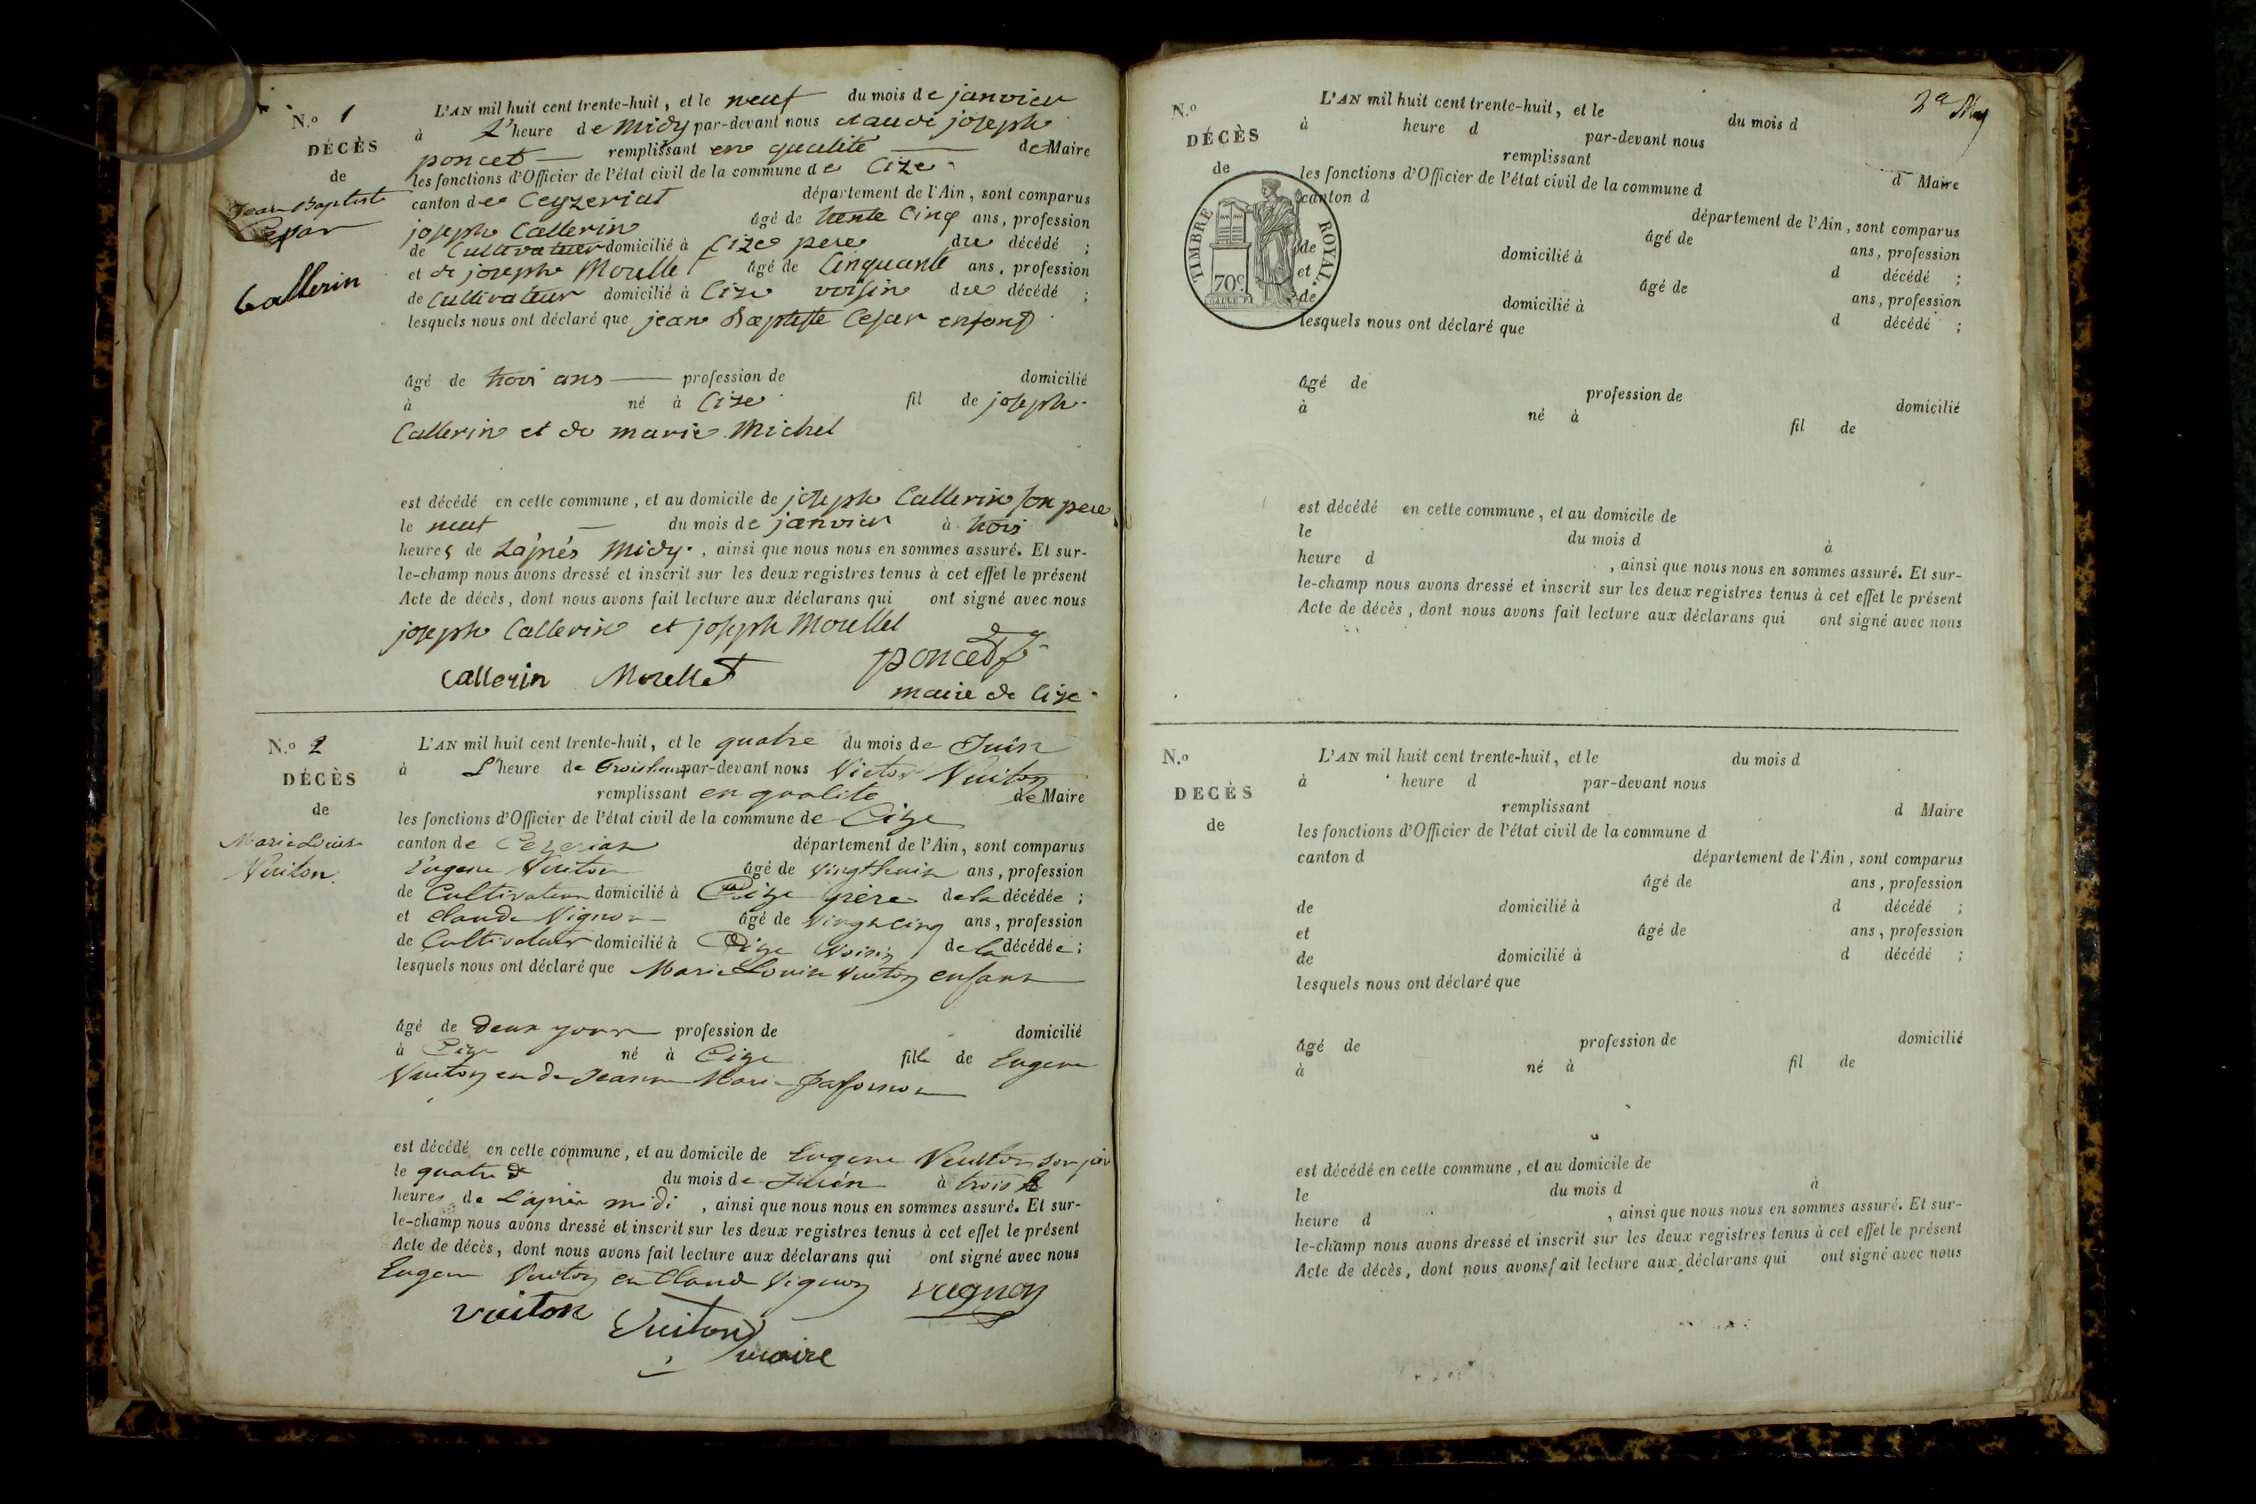 N.º 1
DÉCÈS
de
Jean Baptiste
Cesar
Callerin
L'AN mil huit cent trente-huit, et le neuf du mois de janvier
à L'heure de Midy par-devant nous claude joseph
poncet remplissant en qualité de Maire
les fonctions d'Officier de l'état civil de la commune de Cize
canton de Ceyzeriat département de l'Ain, sont comparus
joseph Callerin âgé de trente Cinq ans, profession
de Cultivateur domicilié à Cize pere du décédé ;
et de joseph Morellet âgé de Cinquante ans, profession
de Cultivateur domicilié à Cize voisin du décédé ;
lesquels nous ont déclaré que jean Baptiste Cesar enfant
âgé de trois ans profession de domicilié
à né à Cize fil de joseph
Callerin et de marie Michel
est décédé en cette commune, et au domicile de joseph Callerin son pere
le neuf du mois de janvier à trois
heures de L'aprés Midy, ainsi que nous nous en sommes assuré. Et sur-
le-champ nous avons dressé et inscrit sur les deux registres tenus à cet effet le présent
Acte de décès, dont nous avons fait lecture aux déclarans qui ont signé avec nous
joseph Callerin et joseph Morellet
Callerin Morellet poncet
maire de Cize
N.º 2
DÉCÈS
de
Marie Louise
Vuiton
L'AN mil huit cent trente-huit, et le quatre du mois de Juin
à L'heure de Trois heures par-devant nous Victor Vuiton
remplissant en qualité de Maire
les fonctions d'Officier de l'état civil de la commune de Cize
canton de Cezeriat département de l'Ain, sont comparus
Eugene Vuiton âgé de Vingt huit ans, profession
de Cultivateur domicilié à Cize père de la décédée ;
et Claude Vignon âgé de Vingt cinq ans, profession
de Cultivateur domicilié à Cize Voisin de la décédée ;
lesquels nous ont déclaré que Marie Louise Vuiton enfant
âgé de Deux jours profession de domicilié
à Cize né à Cize fille de Eugene
Vuiton et de Jeanne Marie
est décédé en cette commune, et au domicile de Eugene Vuiton son père
le quatre du mois de Juin à trois
heures de L'après midi, ainsi que nous nous en sommes assuré. Et sur-
le-champ nous avons dressé et inscrit sur les deux registres tenus à cet effet le présent
Acte de décès, dont nous avons fait lecture aux déclarans qui ont signé avec nous
Eugene Vuiton et Claude Vignon Vugnon
Vuiton Vuiton
maire
N.º
DÉCÈS
de
TIMBRE ROYAL.
70c.
L'AN mil huit cent trente-huit, et le du mois d
à heure d par-devant nous
remplissant d Maire
les fonctions d'Officier de l'état civil de la commune d
canton d département de l'Ain, sont comparus
âgé de ans, profession
de domicilié à d décédé ;
et âgé de ans, profession
de domicilié à d décédé ;
lesquels nous ont déclaré que
âgé de profession de domicilié
à né à fil de
est décédé en cette commune, et au domicile de
le du mois d à
heure d , ainsi que nous nous en sommes assuré. Et sur-
le-champ nous avons dressé et inscrit sur les deux registres tenus à cet effet le présent
Acte de décès, dont nous avons fait lecture aux déclarans qui ont signé avec nous
N.º
DECÈS
de
L'AN mil huit cent trente-huit, et le du mois d
à heure d par-devant nous
remplissant d Maire
les fonctions d'Officier de l'état civil de la commune d
canton d département de l'Ain, sont comparus
âgé de ans, profession
de domicilié à d décédé ;
et âgé de ans, profession
de domicilié à d décédé ;
lesquels nous ont déclaré que
âgé de profession de domicilié
à né à fil de
est décédé en cette commune, et au domicile de
le du mois d à
heure d , ainsi que nous nous en sommes assuré. Et sur-
le-champ nous avons dressé et inscrit sur les deux registres tenus à cet effet le présent
Acte de décès, dont nous avons fait lecture aux déclarans qui ont signé avec nous